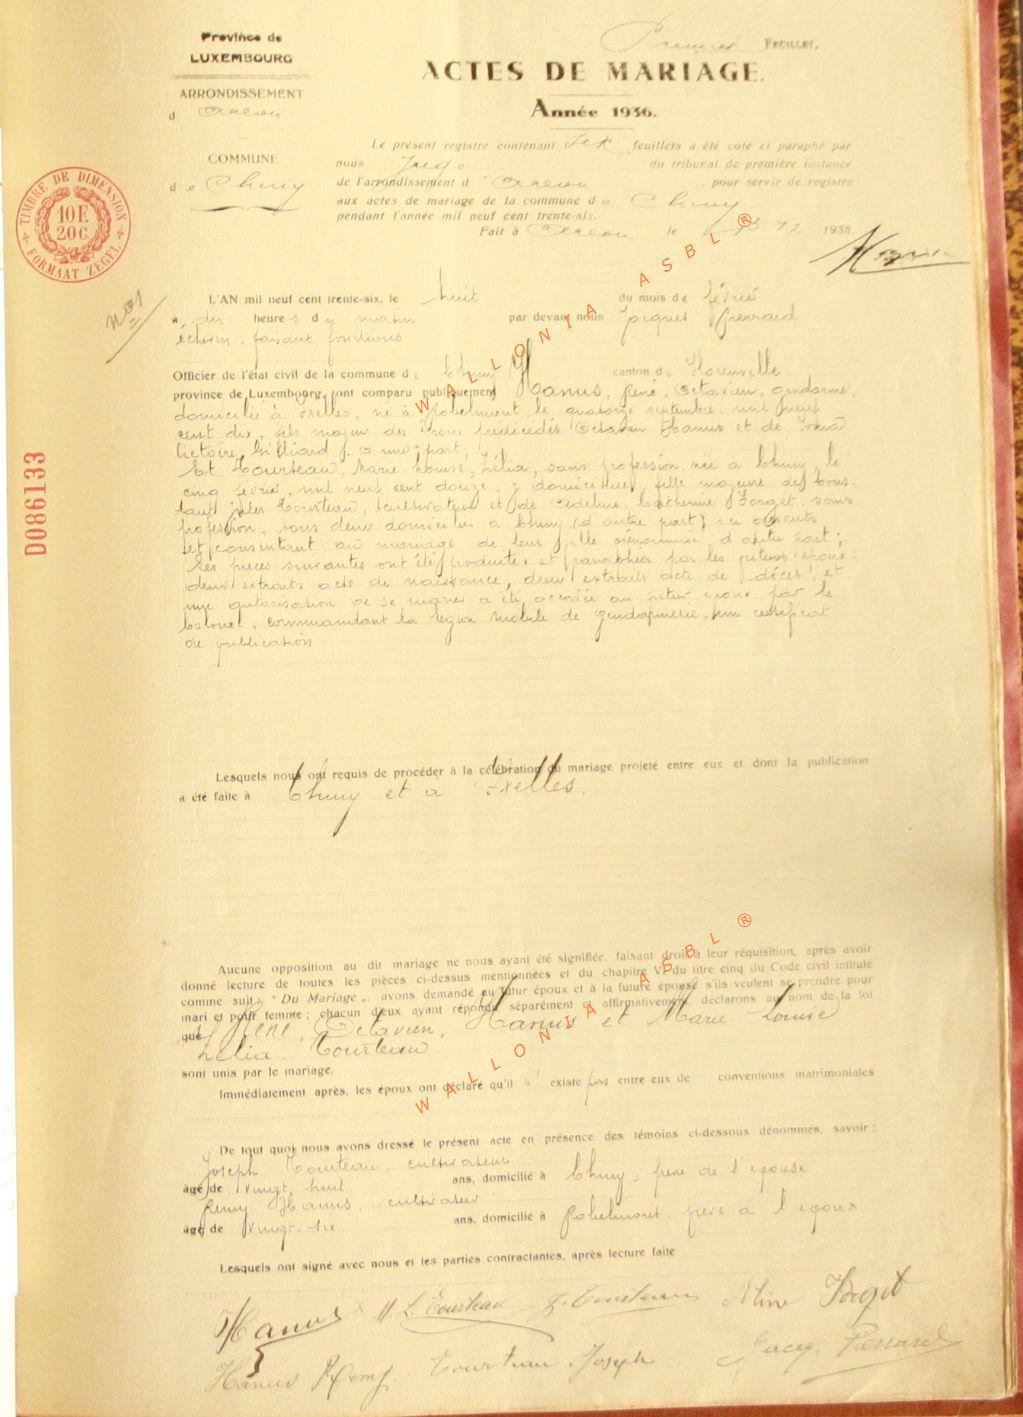 Province de
LUXEMBOURG
ARRONDISSEMENT
d Arlon
COMMUNE
de Chiny
Premier FEUILLET.
ACTES DE MARIAGE.
Année 1936.
Le présent registre contenant feuillets a été coté et paraphé par
nous Juge du tribunal de première instance
de l'arrondissement d'Arlon, pour servir de registre
aux actes de mariage de la commune de Chiny
pendant l'année mil neuf cent trente-six.
Fait à Arlon le 12 1935
TIMBRE DE DIMENSION
10 F.
20 C.
FORMAAT ZEGEL
D086133
WALLONIA ASBL ®
No 1
L'AN mil neuf cent trente-six, le huit du mois de février
à dix heures du matin par devant nous Jacques Pierrard
échevin, faisant fonctions
Officier de l'état civil de la commune de Chiny canton de Florenville
province de Luxembourg, ont comparu publiquement Hanus, René, Octavien, gendarme,
domicilié à Ixelles, né à Robelmont, le quatorze septembre, mil neuf
cent dix, fils majeur des époux prédécédés Octavien Hanus et de
Victoire, Gilliard, d'une part;
Et Tourteau, Marie-Louise, Zélia, sans profession, née à Chiny, le
cinq février, mil neuf cent douze, y domiciliée, fille majeure de
Jules Tourteau, cultivateur et de Adeline, Catherine Forget, sans
profession, tous deux domiciliés à Chiny (d'autre part) ici présents
et consentant au mariage de leur fille prénommée d'autre part;
les pièces suivantes ont été produites et paraphées par les futurs époux:
deux extraits acte de naissance, deux extraits acte de décès, et
une autorisation de se marier a été accordée au futur époux par le
Colonel, commandant la légion mobile de gendarmerie, un certificat
de publication.
Lesquels nous ont requis de procéder à la célébration du mariage projeté entre eux et dont la publication
a été faite à Chiny et à Ixelles.
WALLONIA ASBL ®
Aucune opposition au dit mariage ne nous ayant été signifiée, faisant droit à leur réquisition, après avoir
donné lecture de toutes les pièces ci-dessus mentionnées et du chapitre VI du titre cinq du Code civil intitulé
comme suit: " Du Mariage „, avons demandé au futur époux et à la future épouse s'ils veulent se prendre pour
mari et pour femme; chacun d'eux ayant répondu séparément et affirmativement, déclarons au nom de la loi
que René, Octavien, Hanus et Marie-Louise
Zélia, Tourteau
sont unis par le mariage.
Immédiatement après, les époux ont déclaré qu'il n' existe pas entre eux de conventions matrimoniales
De tout quoi nous avons dressé le présent acte en présence des témoins ci-dessous dénommés, savoir:
Joseph Tourteau, cultivateur
âgé de vingt huit ans, domicilié à Chiny, frère de l'épouse
Remy Hanus, cultivateur
âgé de vingt-six ans, domicilié à Robelmont, frère à l'époux
Lesquels ont signé avec nous et les parties contractantes, après lecture faite
Hanus M L. Tourteau J. Tourteau Aline Forget
Hanus Remy. Tourteau Joseph Jacq. Pierrard